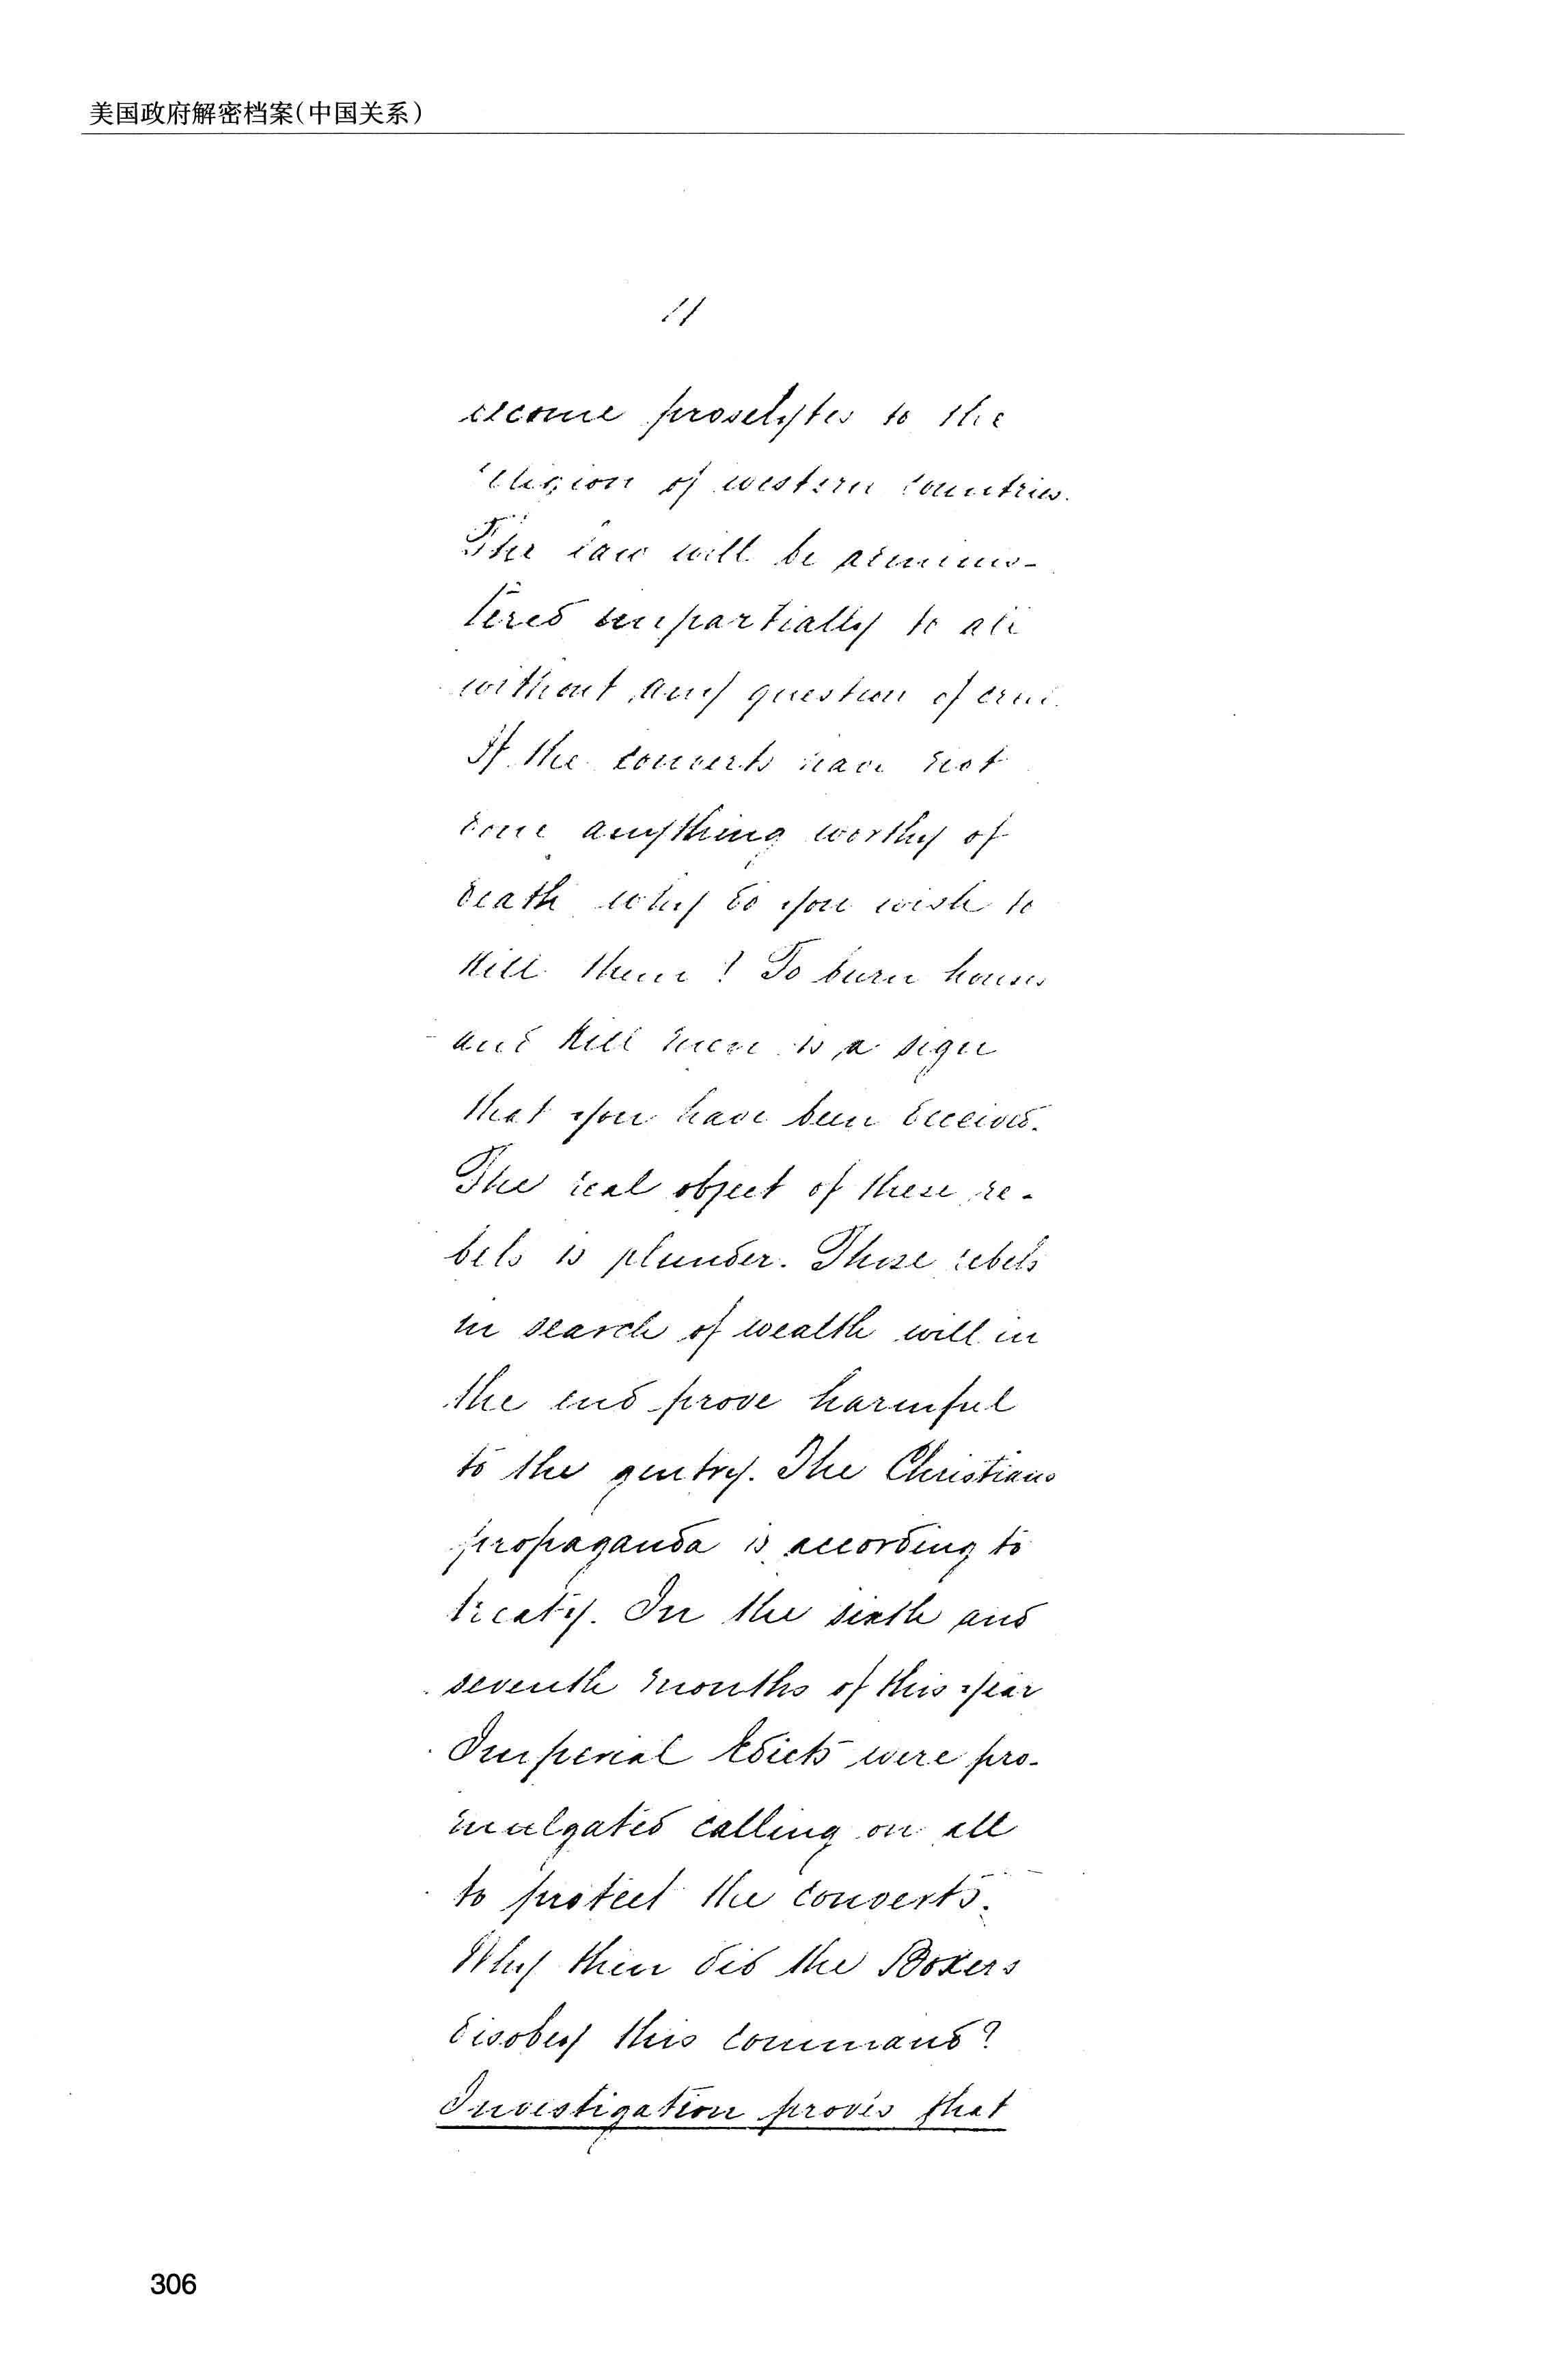 美国政府解密档案(中国关系)
11
become proselytes to the
religion of western countries.
The law will be adminis-
tered impartially to all
without any question of
If the converts have not
done anything worthy of
death why do you wish to
kill them? To burn houses
and kill men is a sign
that you have been deceived.
The real object of these re-
bels is plunder. These rebels
in search of wealth will in
the end prove harmful
to the gentry. The Christians
propaganda is according to
treaty. In the sixth and
seventh months of this year
Imperial Edicts were pro-
mulgated calling on all
to protect the converts.
Why then did the Boxers
disobey this command?
Investigation proves that
306